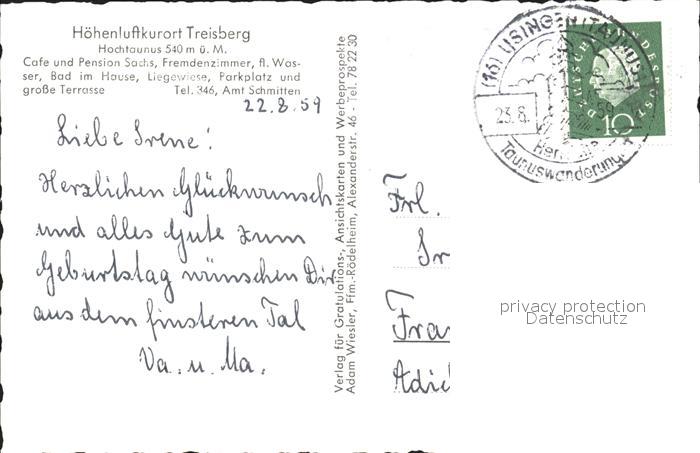 Höhenluftkurort Treisberg
Hochtaunus 540 m ü. M.
Cafe und Pension Sachs, Fremdenzimmer, fl. Was-
ser, Bad im Hause, Liegewiese, Parkplatz und
große Terrasse Tel. 346, Amt Schmitten
22.8.59
Liebe Irene!
Herzlichen Glückwunsch
und alles Gute zum
Geburtstag wünschen Dir
aus dem finsteren Tal
Va. u. Ma.
Verlag für Gratulations-, Ansichtskarten und Werbeprospekte
Adam Wiesler, Ffm.-Rödelheim, Alexanderstr. 46 - Tel. 78 22 30
(16) USINGEN (TAUNUS)
23.8. 59
Taunuswanderung
DEUTSCHE BUNDESPOST
10
Frl.
Ir
Fra
privacy protection
Datenschutz